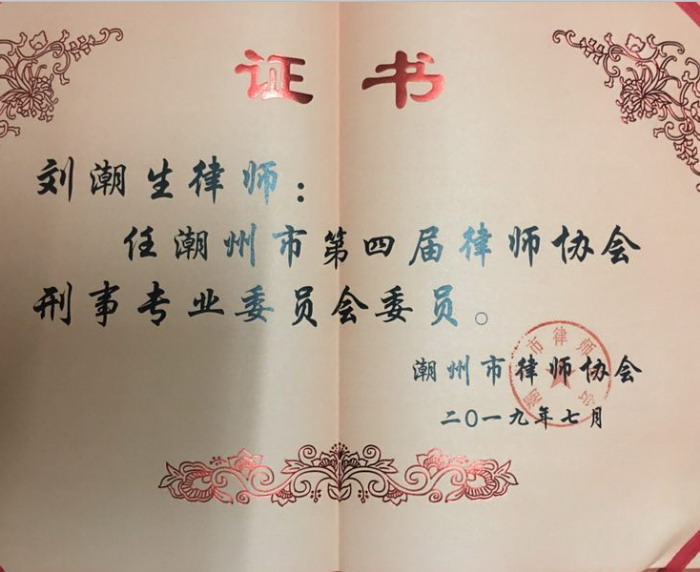 证书
刘潮生律师：
任潮州市第四届律师协会
刑事专业委员会委员。
潮州市律师协会
二〇一九年七月